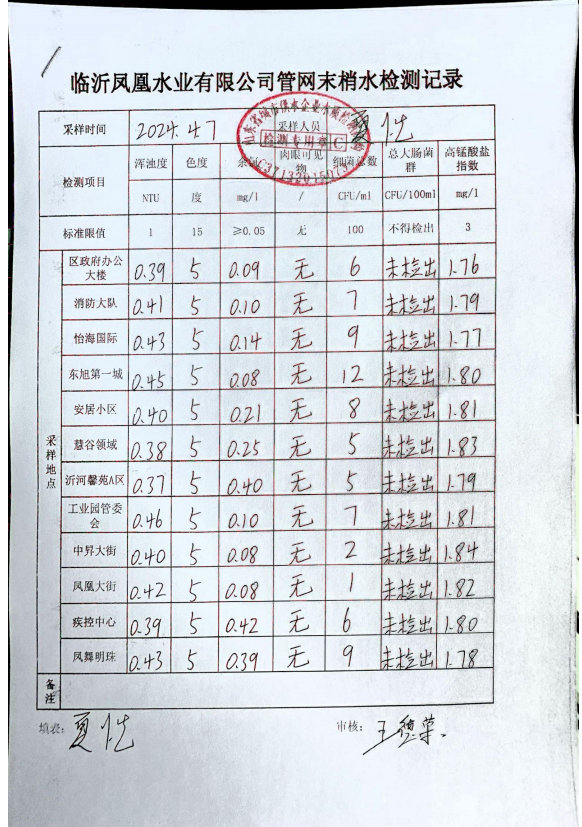 临沂凤凰水业有限公司管网末梢水检测记录
采样时间 2024.4.7 采样人员 夏
山东省城市供水企业水质检测
检测专用章 C
C3713201507
检测项目 浑浊度 色度 余氯 肉眼可见物 细菌总数 总大肠菌群 高锰酸盐指数
NTU 度 mg/l / CFU/ml CFU/100ml mg/l
标准限值 1 15 ≥0.05 无 100 不得检出 3
采样地点
区政府办公大楼 0.39 5 0.09 无 6 未检出 1.76
消防大队 0.41 5 0.10 无 7 未检出 1.79
怡海国际 0.43 5 0.14 无 9 未检出 1.77
东旭第一城 0.45 5 0.08 无 12 未检出 1.80
安居小区 0.40 5 0.21 无 8 未检出 1.81
慧谷领域 0.38 5 0.25 无 5 未检出 1.83
沂河馨苑A区 0.37 5 0.40 无 5 未检出 1.79
工业园管委会 0.46 5 0.10 无 7 未检出 1.81
中昇大街 0.40 5 0.08 无 2 未检出 1.84
凤凰大街 0.42 5 0.08 无 1 未检出 1.82
疾控中心 0.39 5 0.42 无 6 未检出 1.80
凤舞明珠 0.43 5 0.39 无 9 未检出 1.78
备注
填表: 夏 审核: 王德荣